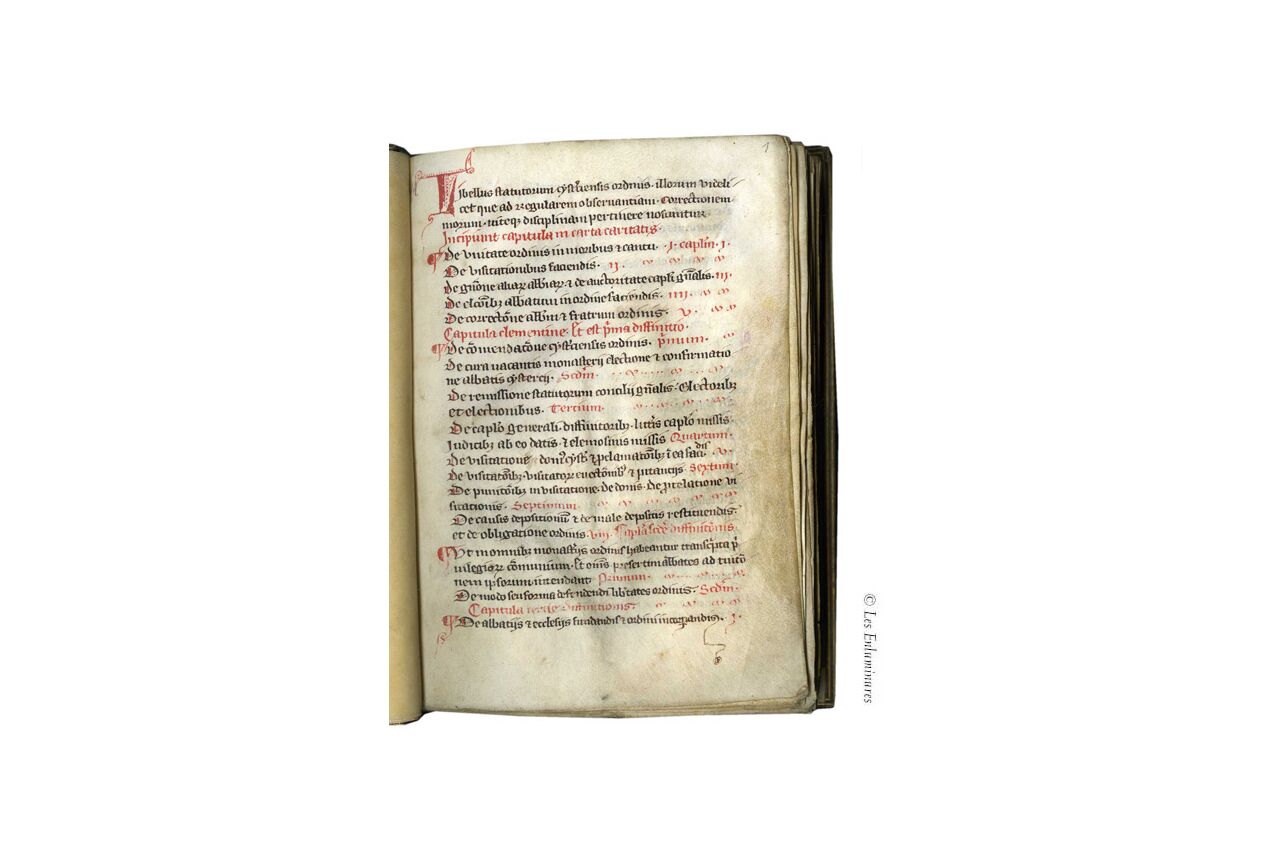 1
Libellus statutorum cysterciensis ordinis. illorum videli
cet que ad regularem observantiam. Correctionem
morum. disciplinam pertinere noscuntur.
Incipiunt capitula in carta caritatis.
De unitate ordinis in moribus & cantu. I. caplm. I.
De visitationibus faciendis. II.
De & de auctoritate capli gn̄alis. III.
De elcōibꝫ abbatum in ordine faciendis. IIII.
De correctōne abbm & fratrum ordinis. V.
Capitula clementine. Et est p̄ma diffinitio.
De cōmendacōne cystciensis ordinis. p̄mum.
De cura vacantis monasterij electione & confirmatio
ne abbatis cystercij. Scdm.
De remissione statutorum concilij gn̄alis. Electoribꝫ
et electionibus. Tercium.
De caplo generali. diffinitoribꝫ. litt̄is caplo missis.
Iudicibꝫ ab eo datis. & elemosinis missis Quartum.
De visitatione dom' cyst' & V.
De visitatōibꝫ. visitatorꝝ & pitantijs Sextum.
De punitōibꝫ in visitatione. De donis. De revelatione vi
sitationis. Septimum.
De causis depositionū & de male depositis restituendis.
et de obligatione ordinis. VIII. Capla scde diffinitōnis.
Ut in omnibꝫ monastijs ordinis habeantur transcpta p̄
uilegiorꝝ cōmunium. Et presertim abbates ad tuitō
nem ipsorum intendant. Primum.
De modo seu forma defendendi libtates ordinis. Scdm.
Capitula tercie diffinitionis.
De abbatijs & ecclesijs fundandis & ordini incorpandis. I.
© Les Enluminures